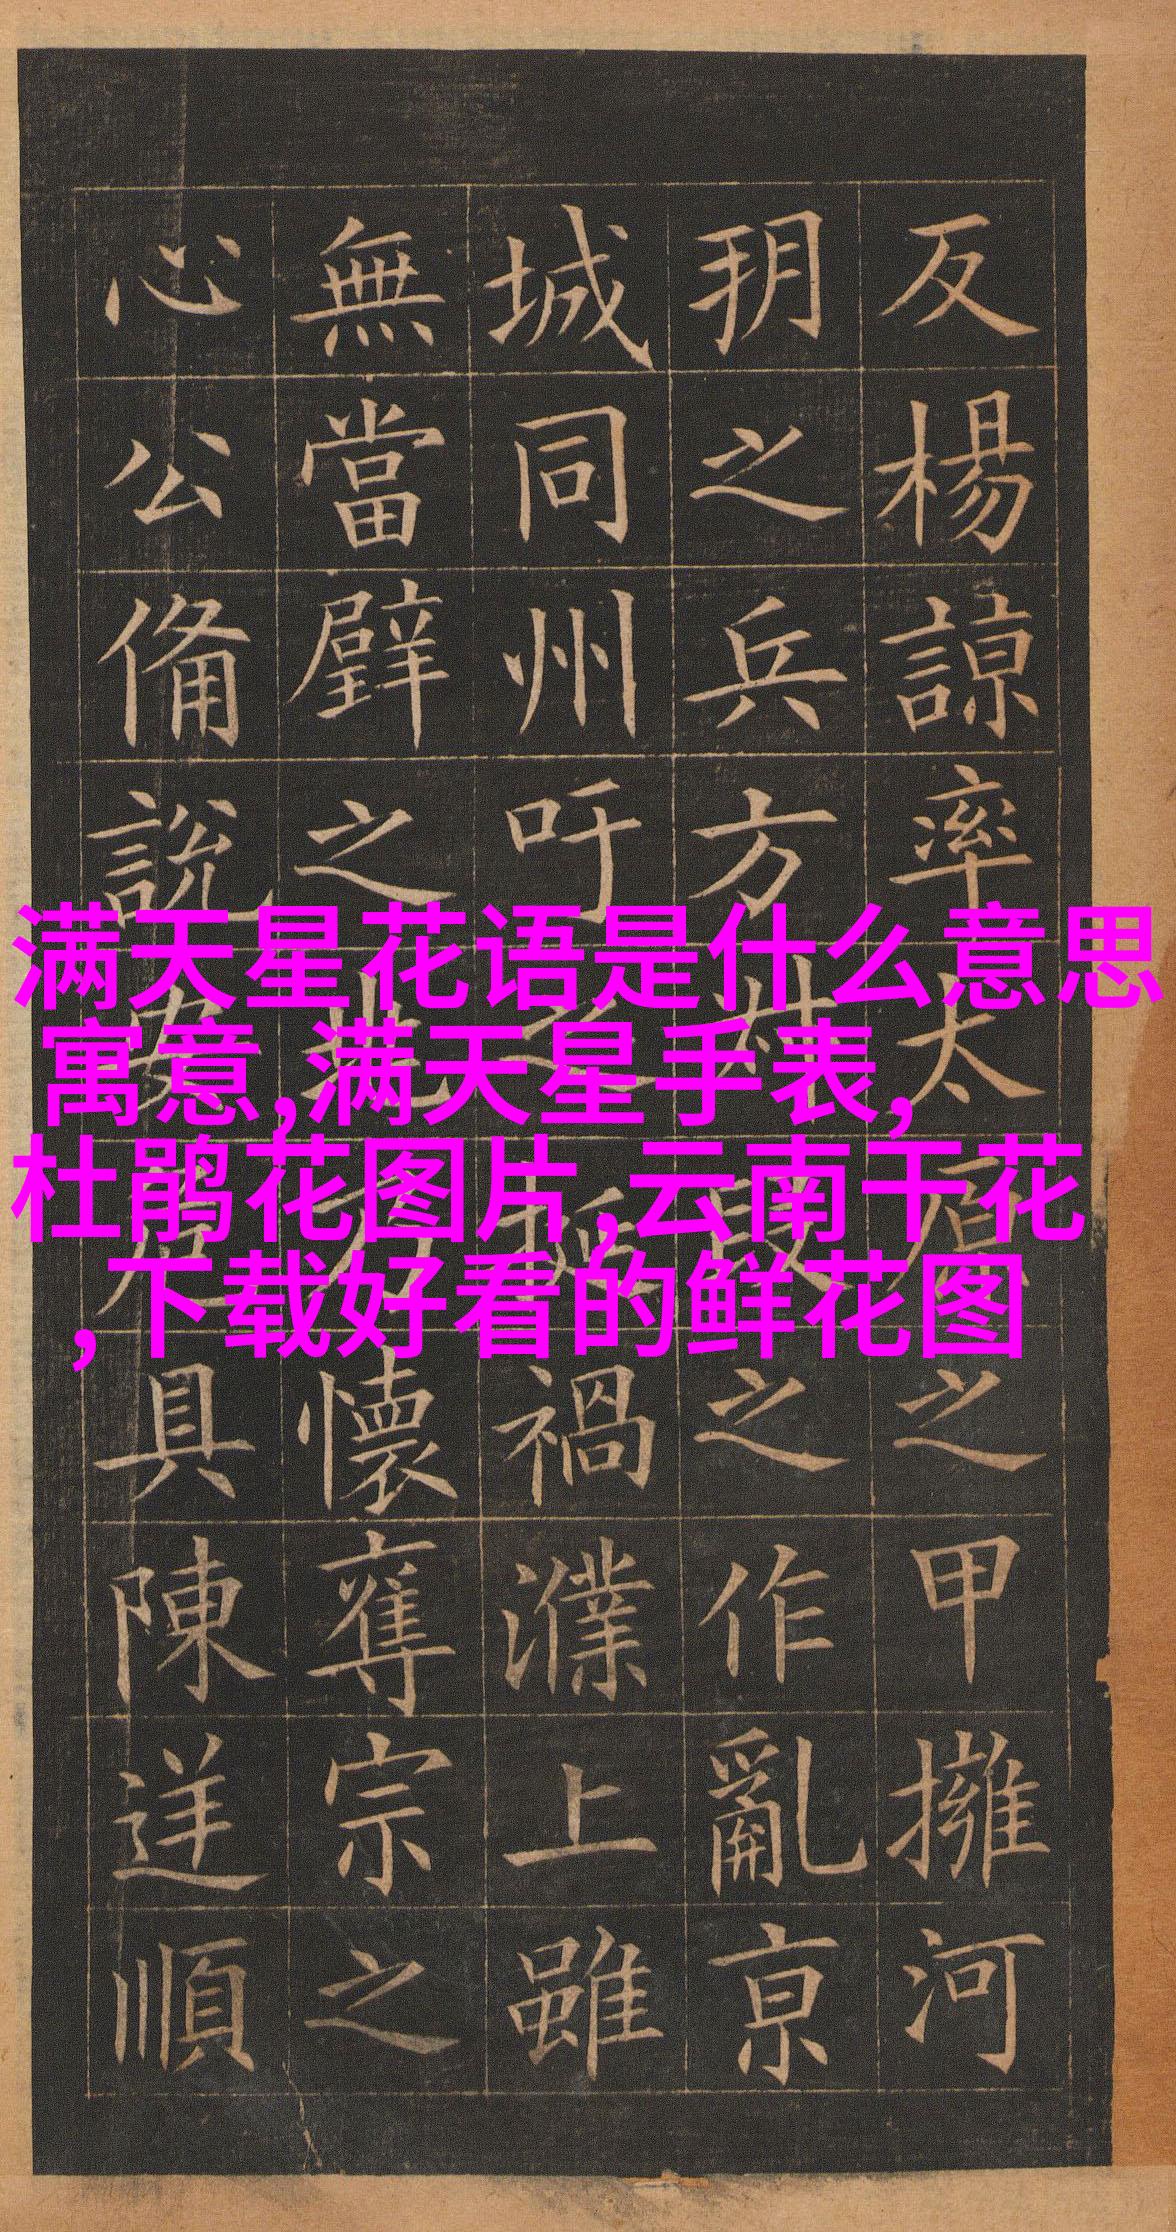 反楊諒率太原之甲擁河
玥之兵方叔段之作亂亰
城同州吁之挻禍濮上雖
無當璧之兆乃懷奪宗之
心公備說安危具陳逆順
满天星花语是什么意思
寓意,满天星手表,
杜鹃花图片,云南干花
,下载好看的鲜花图